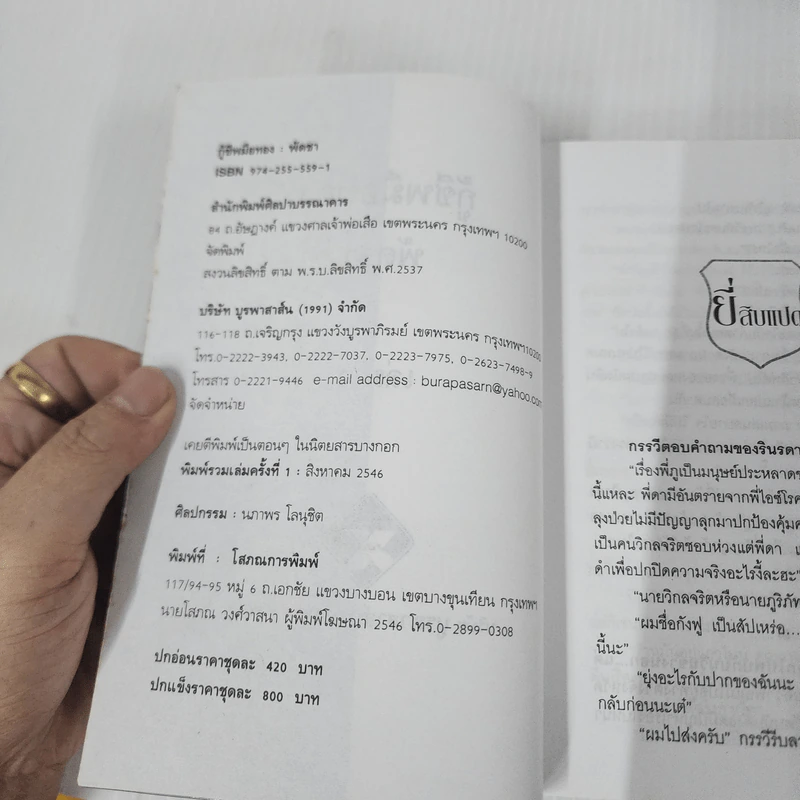 กู้ชีพมือทอง : พัดชา
ISBN 974-255-559-1
สำนักพิมพ์ศิลปาบรรณาคาร
84 ถ.อัษฎางค์ แขวงศาลเจ้าพ่อเสือ เขตพระนคร กรุงเทพฯ 10200
จัดพิมพ์
สงวนลิขสิทธิ์ ตาม พ.ร.บ.ลิขสิทธิ์ พ.ศ.2537
บริษัท บูรพาสาส์น (1991) จำกัด
116-118 ถ.เจริญกรุง แขวงวังบูรพาภิรมย์ เขตพระนคร กรุงเทพฯ10200
โทร.0-2222-3943, 0-2222-7037, 0-2223-7975, 0-2623-7498-9
โทรสาร 0-2221-9446 e-mail address : burapasarn@yahoo.com
จัดจำหน่าย
เคยตีพิมพ์เป็นตอนๆ ในนิตยสารบางกอก
พิมพ์รวมเล่มครั้งที่ 1 : สิงหาคม 2546
ศิลปกรรม : นภาพร โลนุชิต
พิมพ์ที่ : โสภณการพิมพ์
117/94-95 หมู่ 6 ถ.เอกชัย แขวงบางบอน เขตบางขุนเทียน กรุงเทพฯ
นายโสภณ วงศ์วาสนา ผู้พิมพ์โฆษณา 2546 โทร.0-2899-0308
ปกอ่อนราคาชุดละ 420 บาท
ปกแข็งราคาชุดละ 800 บาท
ยี่สิบแปด
กรรวีตอบคำถามของรินรดา
"เรื่องพี่ภูเป็นมนุษย์ประหลาด
นี้แหละ พี่ดามีอันตรายจากพี่ไอซ์โรค
ลุงป่วยไม่มีปัญญาลุกมาปกป้องคุ้ม
เป็นคนวิกลจริตชอบห่วงแต่พี่ดา
ดำเพื่อปกปิดความจริงอะไรงี้ละฮะ"
"นายวิกลจริตหรือนายภูริภัท
"ผมชื่อกังฟู เป็นสัปเหร่อ...
นี้นะ"
"ยุ่งอะไรกับปากของฉันนะ
กลับก่อนนะเต้"
"ผมไปส่งครับ" กรรวีรีบ